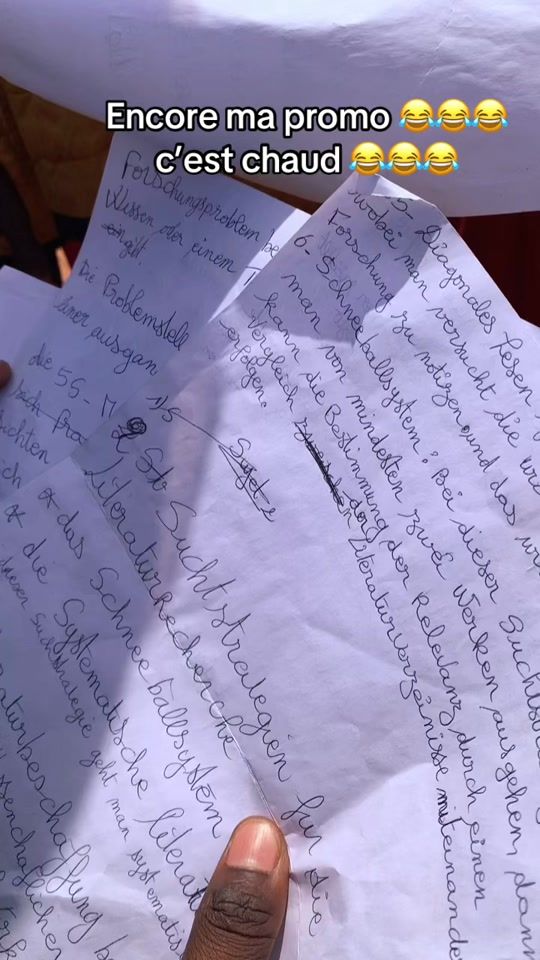 Encore ma promo 😂😂😂
c'est chaud 😂😂😂
Forschungsproblem be
Wissen oder einem T
gilt
Die Problemstell
einer ausgan
die 5G - M
sich fra
ichten
ich
5- Diagonales Lesen
wobei man versucht die wi
Forschung zu notizen und das w
6- Schneeballsystem: Bei dieser Suchtstra
man von mindesten zwei Werken ausgehen, dann
kann die Bestimmung der Relevanz durch einen
Vergleich der Literaturverzeinisse miteinander
erfolgen.
N3
Sujet
Suchtstrategien für die
Literaturrecherche
* das Schneeballsystem
* die Systematische literatu
dieser Suchstrategie geht man systematis
raturbeschaffung b
ssenchaflicher